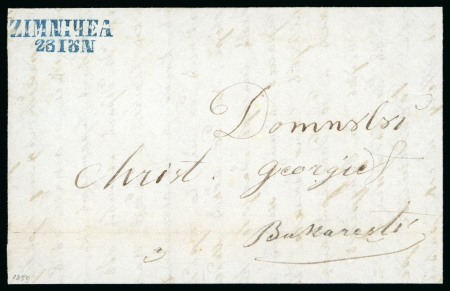 ZIMNIЧEA
23 IȢN
Domnȣlȣi
Christ. georgief
Bukaresti
1850